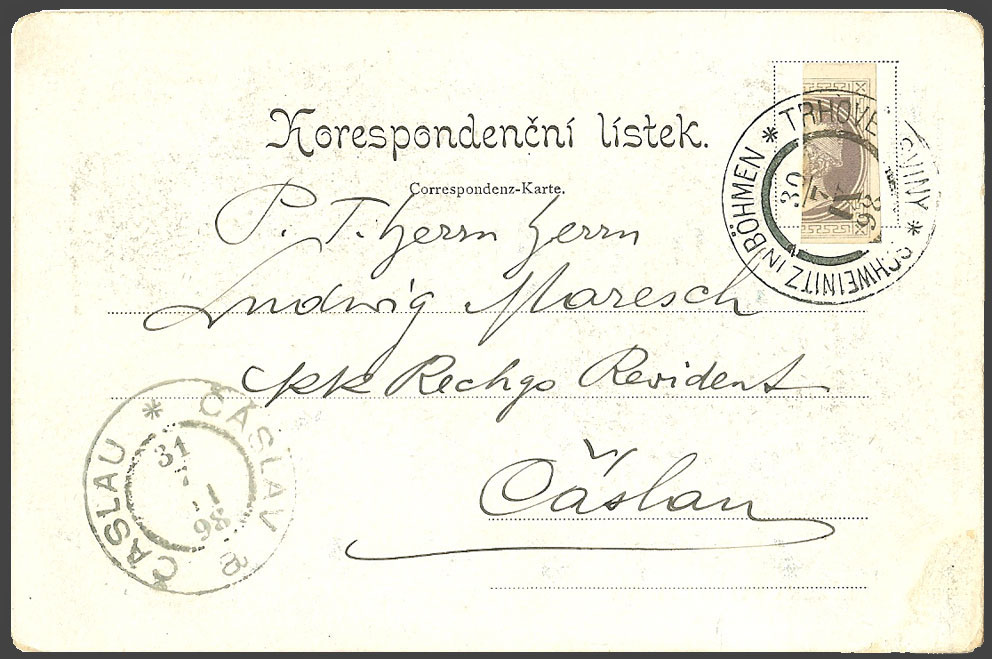 Korespondenční lístek.
Correspondenz-Karte.
TRHOVÉ SVINY * SCHWEINITZ IN BÖHMEN *
30
98
P. T. Herrn Herrn
Ludwig Maresch
kk Rechgs Revident
Čáslau
ČÁSLAV * ČASLAU
31
1
98